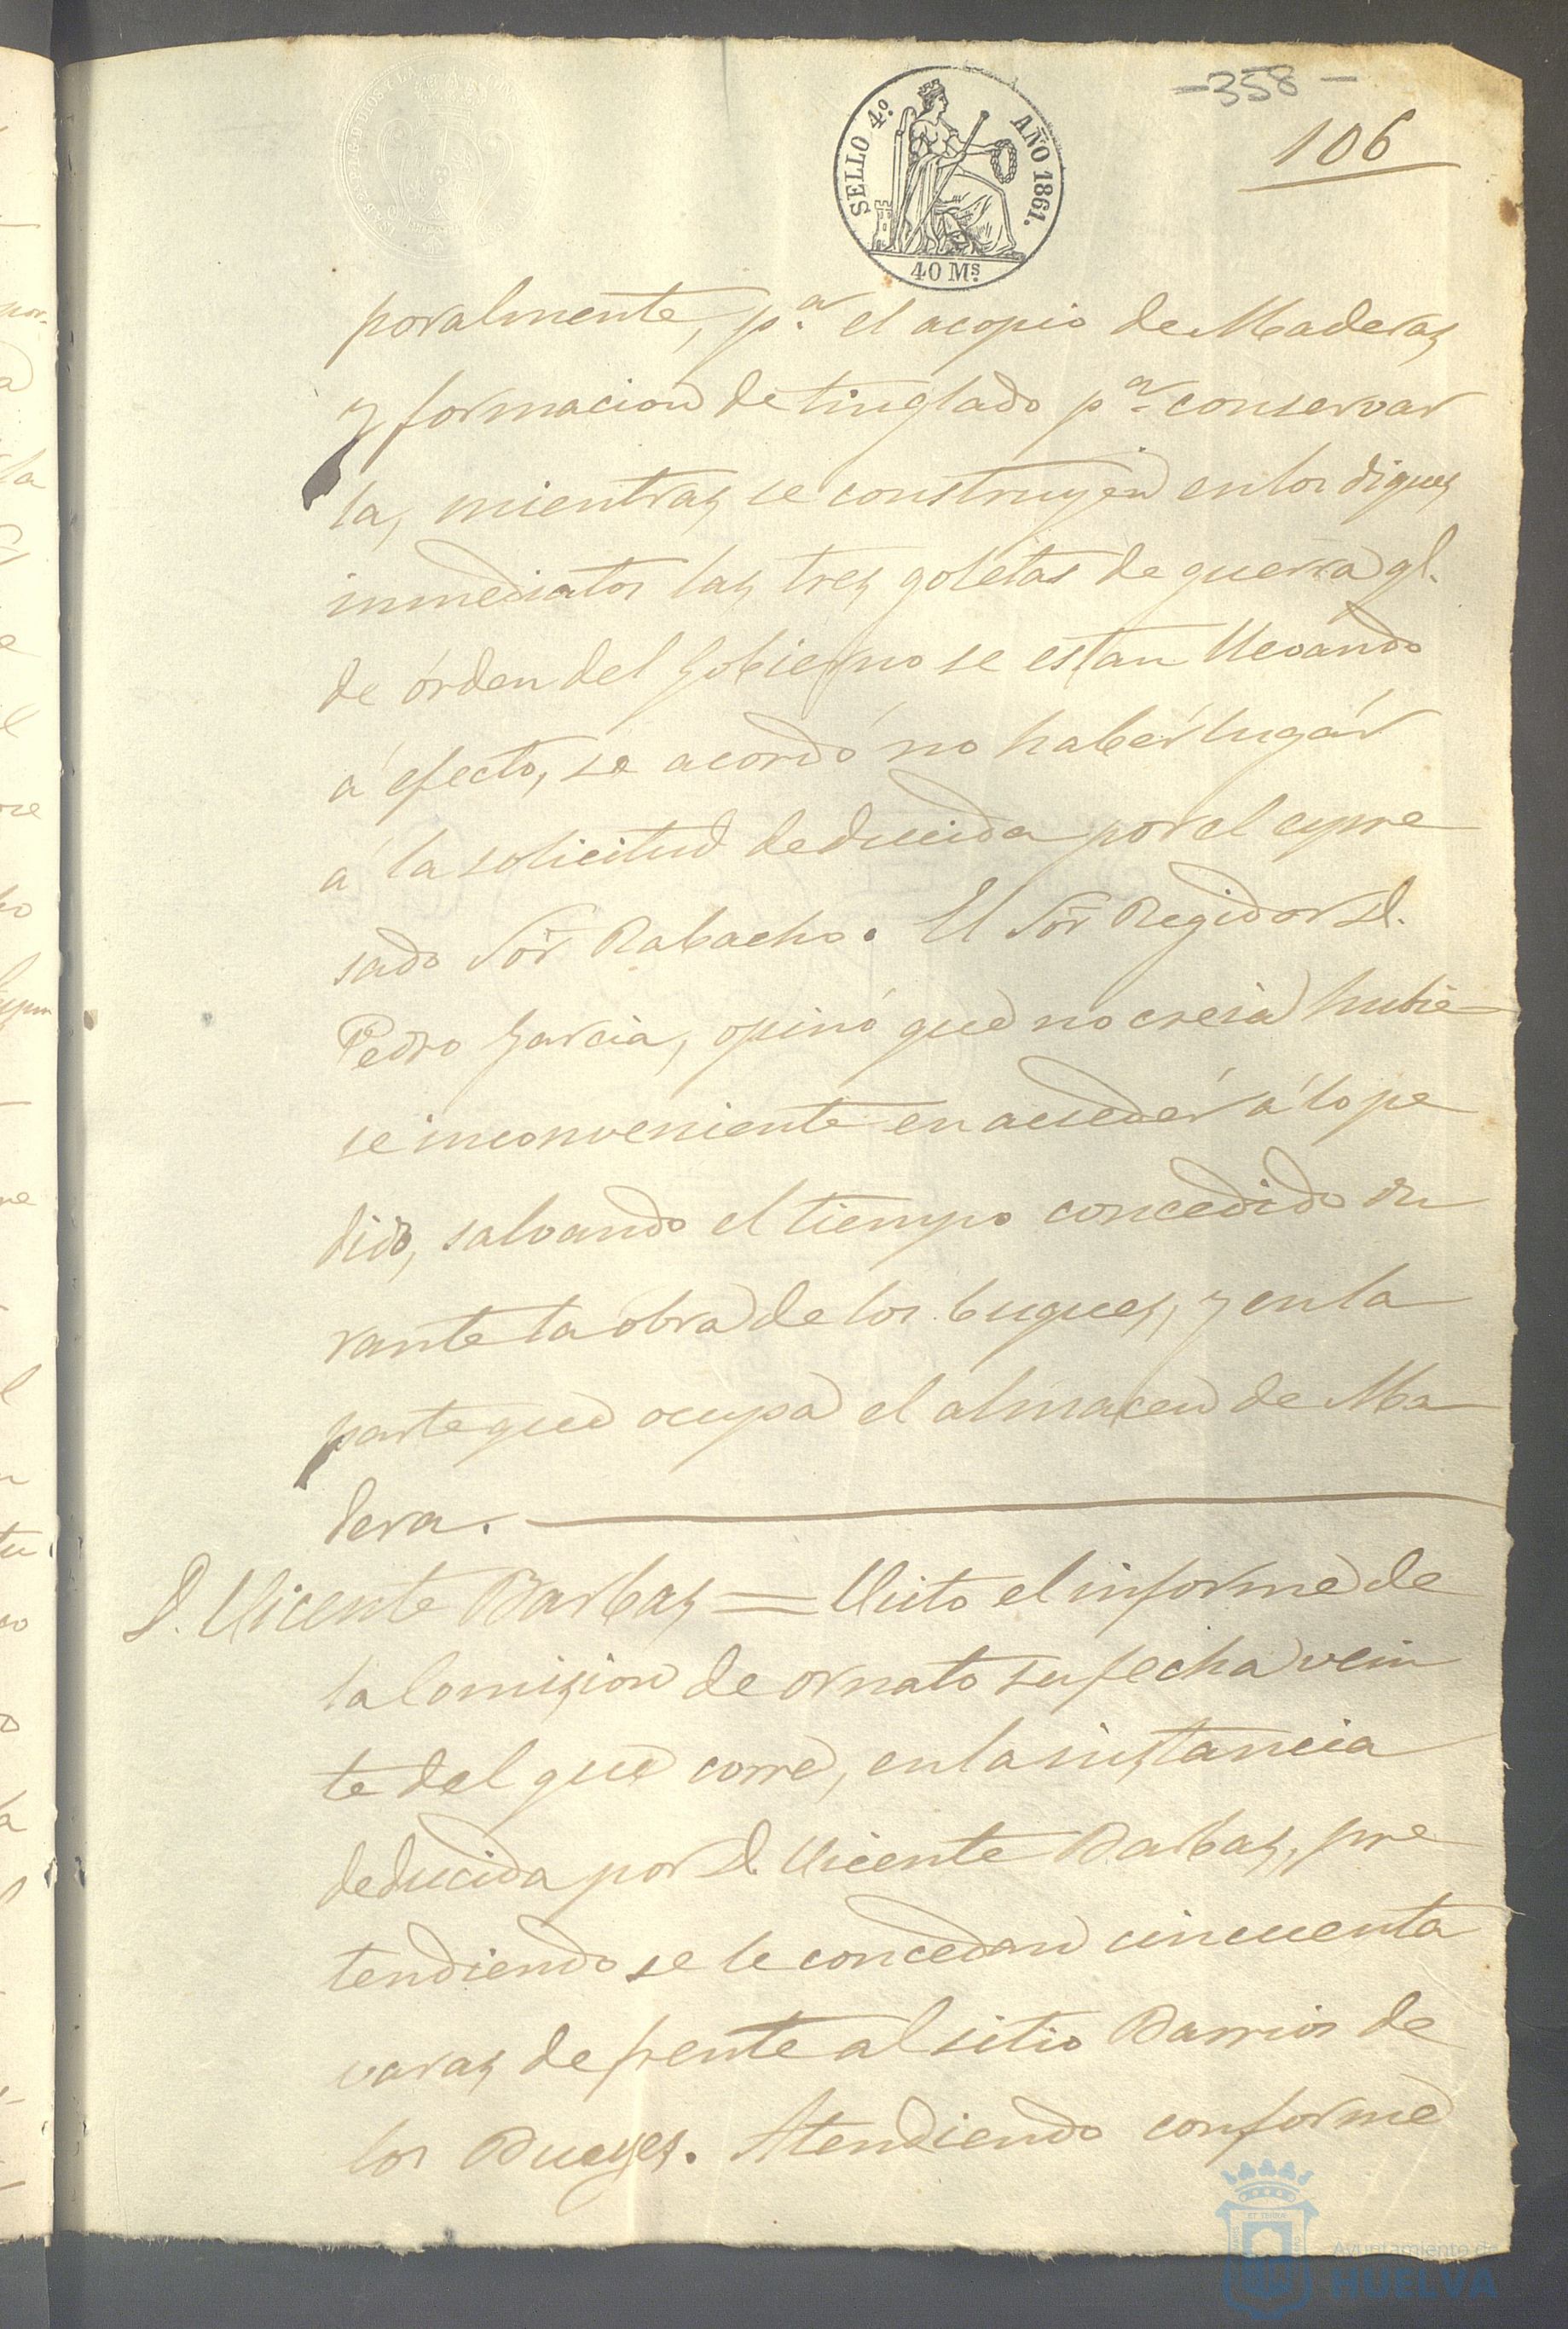 -358-
106
SELLO 4.º AÑO 1861.
40 Ms.
poralmente, p.ª el acopio de Maderas
y formacion de tinglado p.ª conservar
la, mientras se construyen en los diques
inmediatos las tres goletas de guerra q.
de órden del Gobierno se estan llevando
á efecto, se acordó no habér lugár
á la solicitud deducida por el expre
sado Sõr Rabacho. El Sõr Regidor D.
Pedro Garcia, opinó que no creia hubie-
se inconveniente en accedér á lo pe
dido, salvando el tiempo concedido du
rante la obra de los buques, y en la
parte que ocupa el almacen de Ma
dera.
D. Vicente Barbas = Visto el informe de
la Comision de ornato su fecha vein
te del que corre, en la instancia
deducida por D. Vicente Barbas, pre
tendiendo se le concedan cincuenta
varas de frente al sitio Barrios de
los Bueyes. Atendiendo conforme
Ayuntamiento de
HUELVA